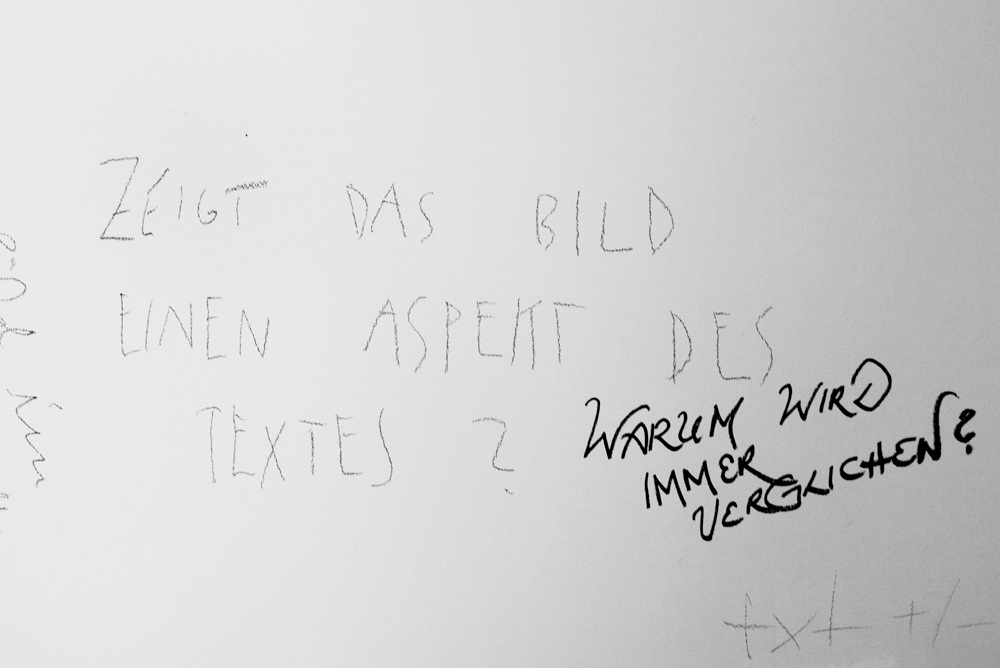 ZEIGT DAS BILD
EINEN ASPEKT DES
TEXTES ?
WARUM WIRD
IMMER
VERGLICHEN ?
txt +/-